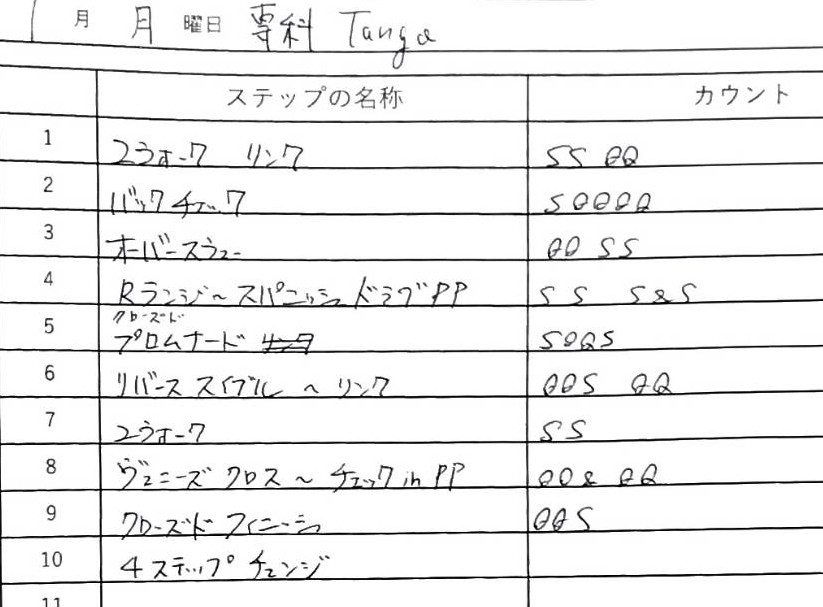 月 月 曜日 専科 Tango
ステップの名称 カウント
1 2ウォーク リンク SS QQ
2 バックチェック SQQQQ
3 オーバースウェー QQ SS
4 Rランジ〜スパニッシュドラグPP S S S&S
クローズド
5 プロムナード リンク SQQS
6 リバース スイブル 〜 リンク QQS QQ
7 2ウォーク SS
8 ヴェニーズ クロス 〜 チェック in PP QQ& QQ
9 クローズド フィニーシュ QQS
10 4ステップ チェンジ
11